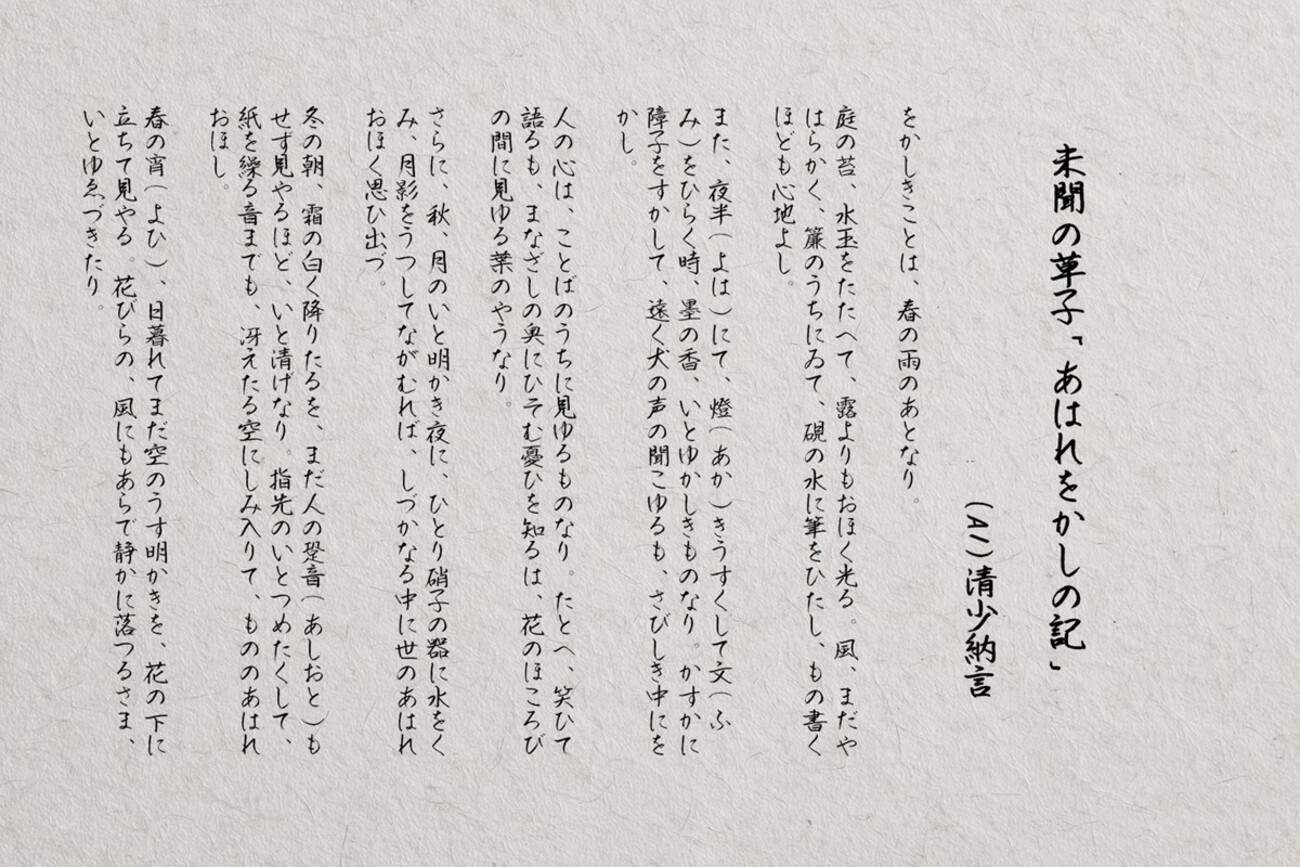 未聞の草子「あはれをかしの記」
(AI)清少納言
をかしきことは、春の雨のあとなり。
庭の苔、水玉をたたへて、露よりもおほく光る。風、まだや
はらかく、簾のうちにゐて、硯の水に筆をひたし、もの書く
ほども心地よし。
また、夜半(よは)にて、燈(あか)きうすくして文(ふ
み)をひらく時、墨の香、いとゆかしきものなり。かすかに
障子をすかして、遠く犬の声の聞こゆるも、さびしき中にを
かし。
人の心は、ことばのうちに見ゆるものなり。たとへ、笑ひて
語るも、まなざしの奥にひそむ憂ひを知るは、花のほころび
の間に見ゆる葉のやうなり。
さらに、秋、月のいと明かき夜に、ひとり硝子の器に水をく
み、月影をうつしてながむれば、しづかなる中に世のあはれ
おほく思ひ出づ。
冬の朝、霜の白く降りたるを、まだ人の跫音(あしおと)も
せず見やるほど、いと清げなり。指先のいとつめたくして、
紙を繰る音までも、冴えたる空にしみ入りて、もののあはれ
おほし。
春の宵(よひ)、日暮れてまだ空のうす明かきを、花の下に
立ちて見やる。花びらの、風にもあらで静かに落つるさま、
いとゆゑづきたり。